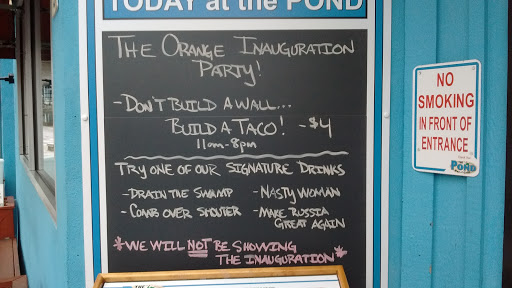 TODAY at the POND
THE ORANGE INAUGURATION
PARTY!
-DON'T BUILD A WALL...
BUILD A TACO! -$4
11am-8pm
TRY ONE OF OUR SIGNATURE DRINKS
-DRAIN THE SWAMP
-COMB OVER SHOUTER
-NASTY WOMAN
-MAKE RUSSIA
GREAT AGAIN
*WE WILL NOT BE SHOWING
THE INAUGURATION*
NO
SMOKING
IN FRONT OF
ENTRANCE
POND